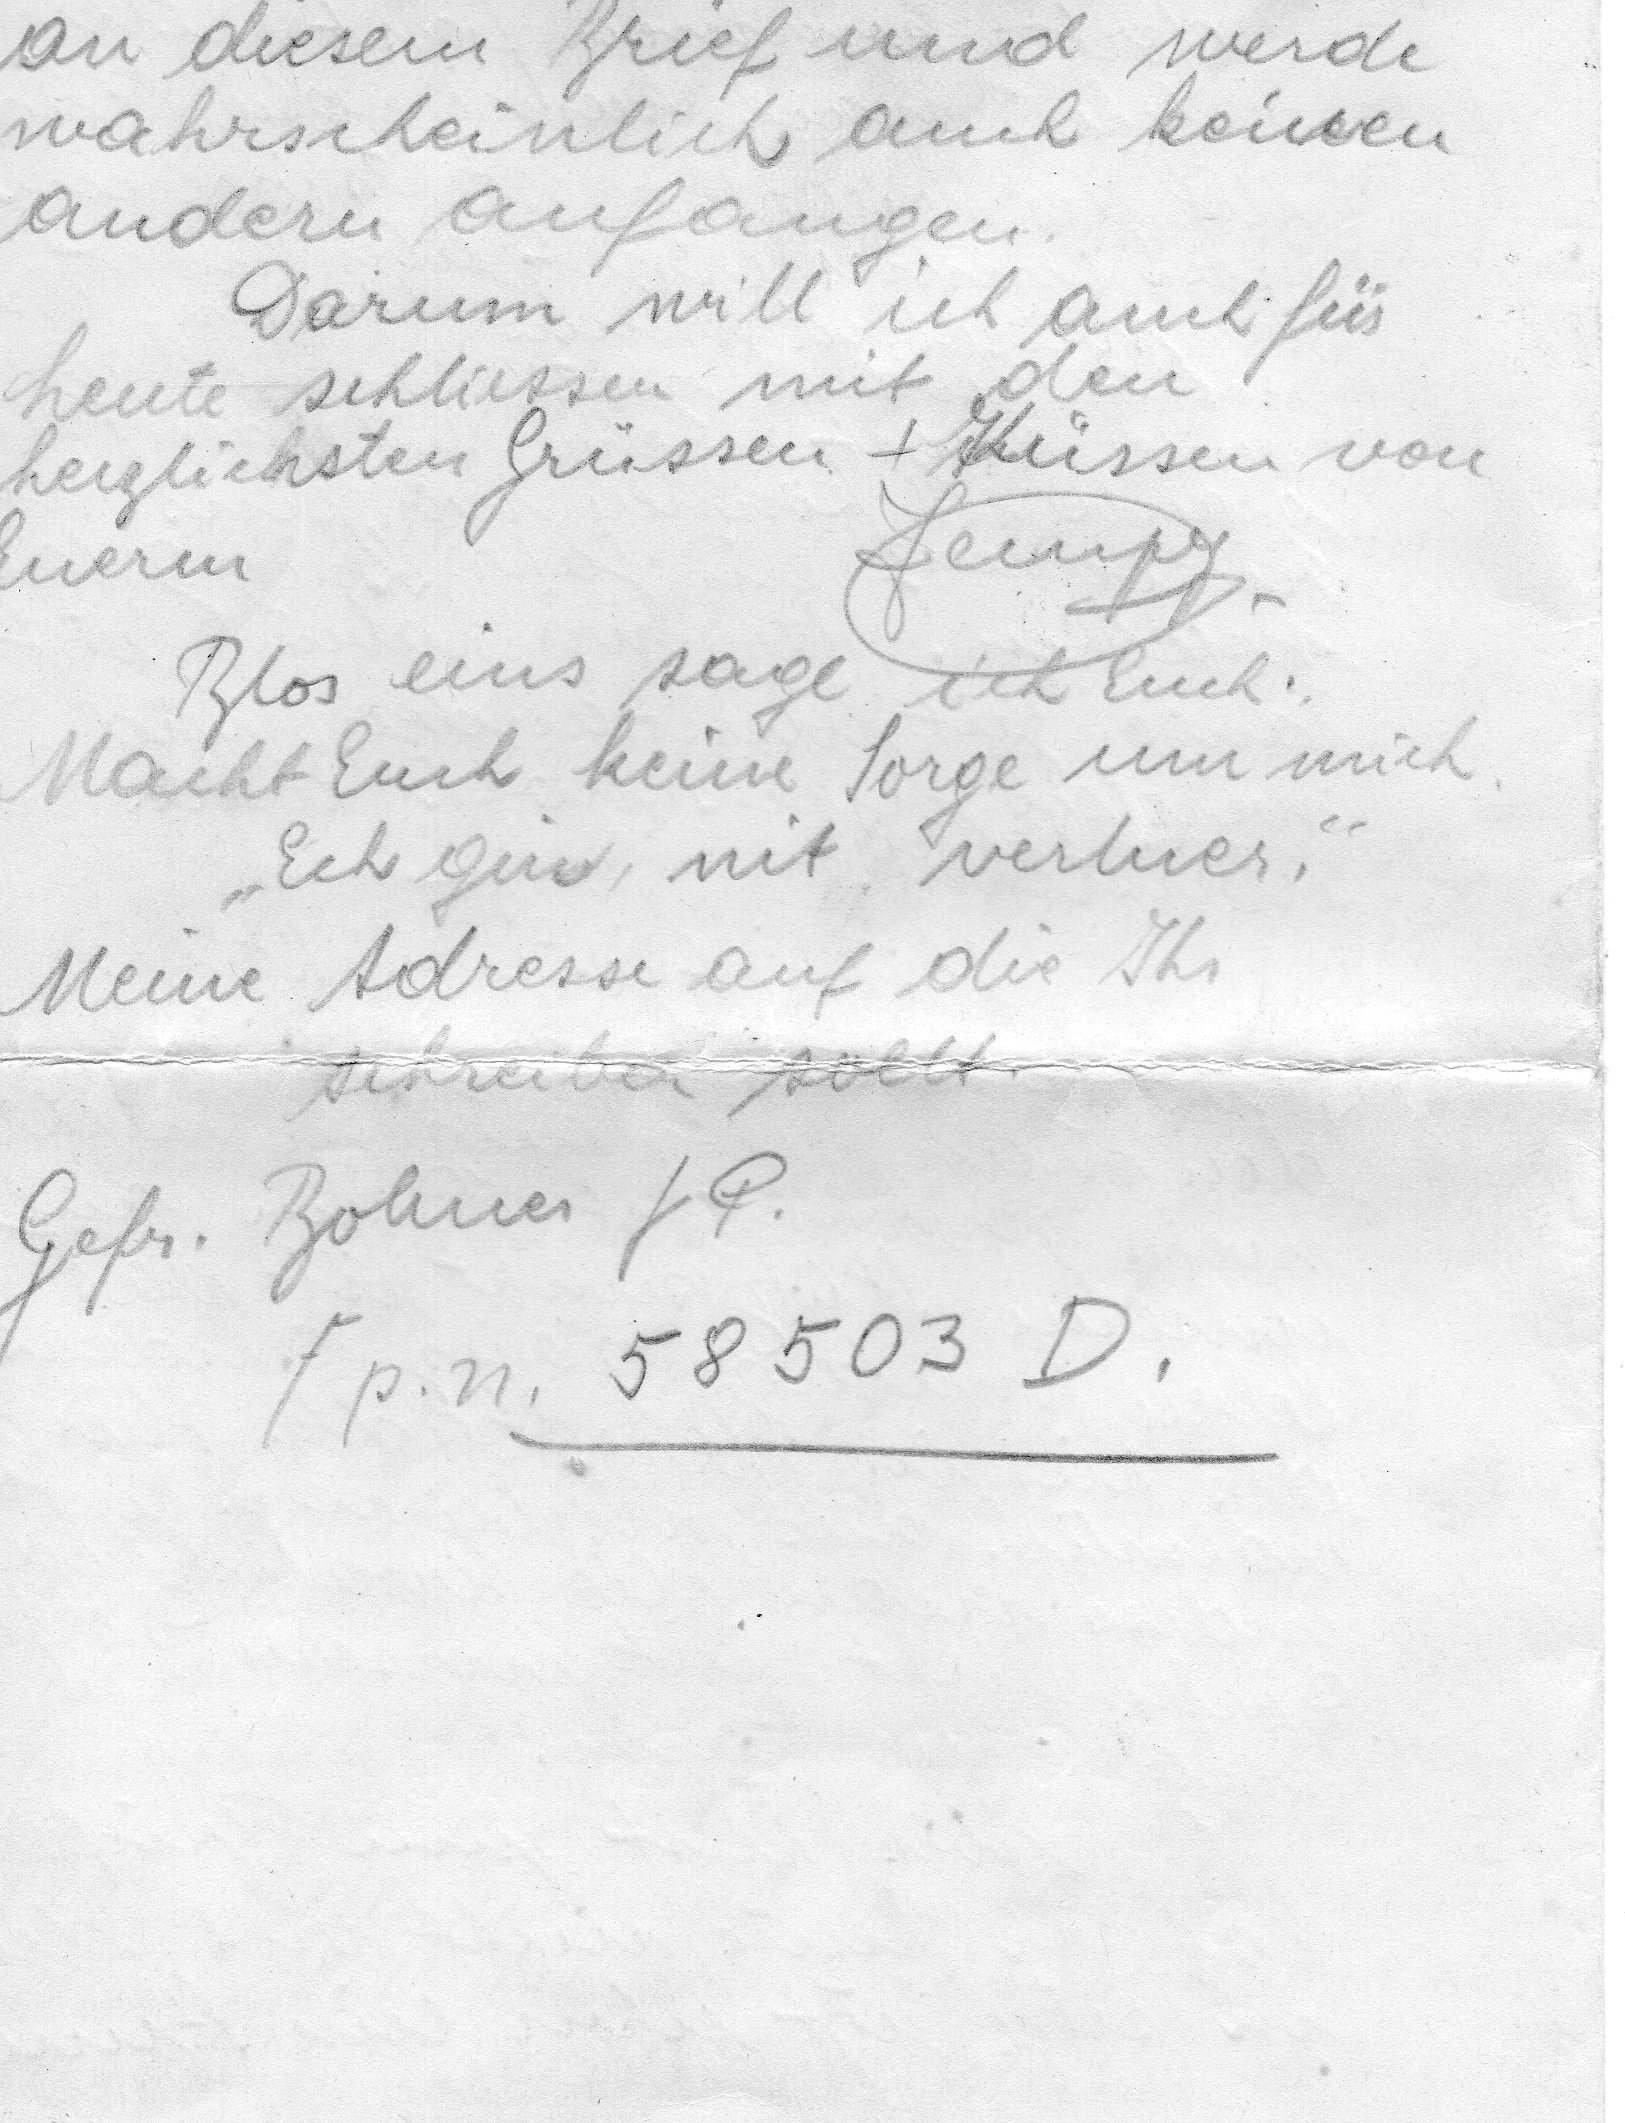 an diesem Brief und werde
wahrscheinlich auch keinen
andern anfangen.
Darum will ich auch für
heute schliessen mit den
herzlichsten Grüssen + Küssen von
Euerm Jempy.
Blos eins sage ich Euch:
Macht Euch keine Sorge um mich.
„Ech gin nit verluer.“
Meine Adresse auf die Ihr
schreiben sollt.
Gefr. Bohner J P.
F p. n. 58503 D.